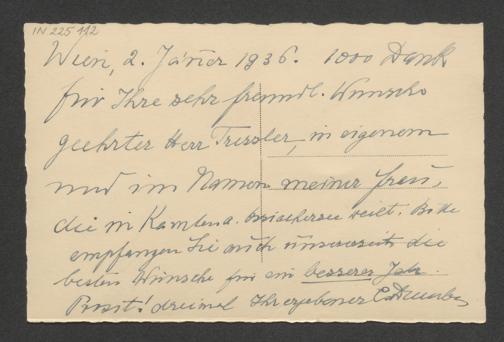 IN 225 112
Wien, 2. Jänner 1936. 1000 Dank
für Ihre sehr freundl. Wünsche
geehrter Herr Tressler, in eigenem
und im Namen meiner Frau,
die in a. Ossiachersee weilt. Bitte
empfangen Sie auch unsererseits die
besten Wünsche für ein besseres Jahr.
Prosit! dreimal Ihr ergebener